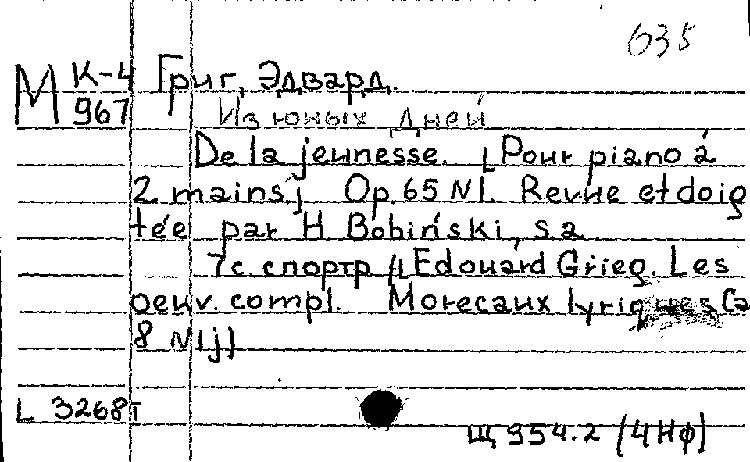 635
М К-4 Григ, Эдвард.
967 Из юных дней
De la jeunesse. [Pour piano à
2 mains] Op. 65 N1. Revue et doig
tée par H. Bobiński, s.a.
7с. с портр (Edouard Grieg. Les
oeuv. compl. Morecaux lyriques
8 N1])
L 3268т
Щ 954.2 (4Нф)